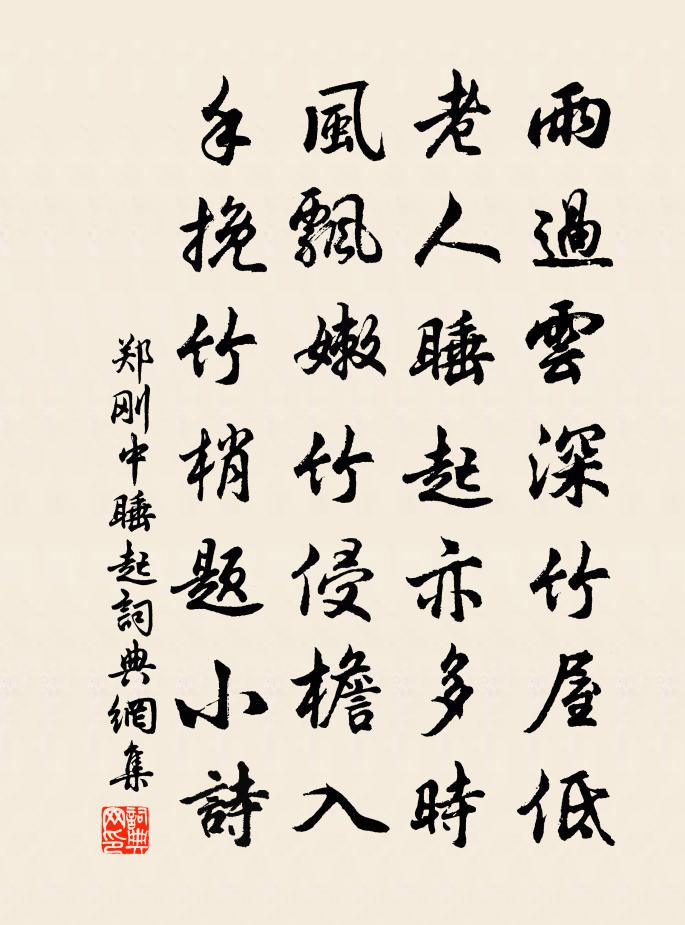 雨過雲深竹屋低
老人睡起亦多時
風飄嫩竹侵檐入
手挽竹梢题小詩
郑刚中睡起詞典網集
詞典网印